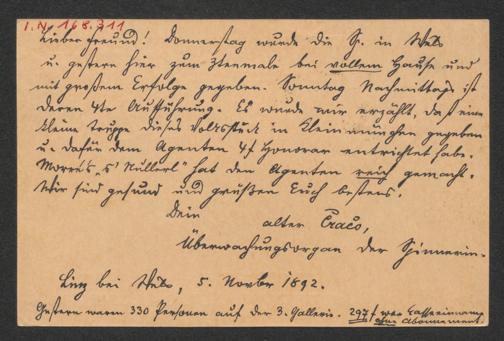 I.N. 168.311
Lieber Freund! Donnerstag wurde die Sp. in Wels
u. gestern hier zum 3tenmale bei vollem Hause und
mit großem Erfolge gegeben. Sonntag Nachmittags ist
deren 4te Aufführung. Es wurde mir erzählt, daß eine
kleine Truppe dieses Volksstück in Kleinmünchen gegeben
u. dafür dem Agenten 4 f Honorar entrichtet habe.
Morré's „'s Nullerl“ hat den Agenten reich gemacht.
Wir sind gesund und grüßen Euch bestens.
Dein
alter
Überwachungsorgan der Spinnerin.
Linz bei Wels, 5. Novbr 1892.
Gestern waren 330 Personen auf der 3. Gallerie. 297 f war Kasseeinnahme
ohne Abonnement.